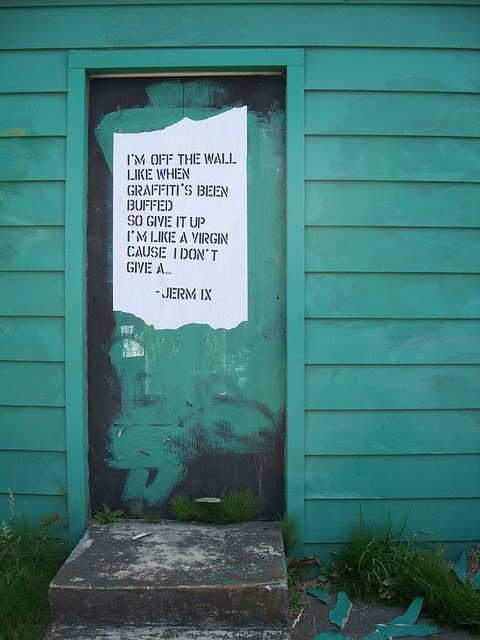 I'M OFF THE WALL
LIKE WHEN
GRAFFITI'S BEEN
BUFFED
SO GIVE IT UP
I'M LIKE A VIRGIN
CAUSE I DON'T
GIVE A...
-JERM IX